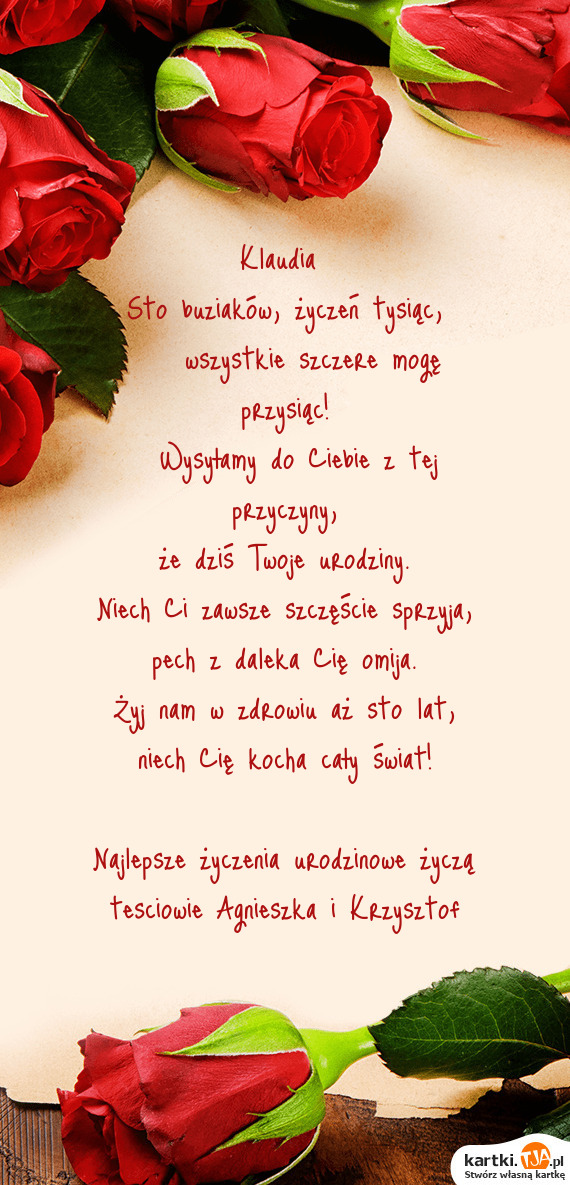 Klaudia
Sto buziaków, życzeń tysiąc,
wszystkie szczere mogę
przysiąc!
Wysyłamy do Ciebie z tej
przyczyny,
że dziś Twoje urodziny.
Niech Ci zawsze szczęście sprzyja,
pech z daleka Cię omija.
Żyj nam w zdrowiu aż sto lat,
niech Cię kocha cały świat!
Najlepsze życzenia urodzinowe życzą
tesciowie Agnieszka i Krzysztof
kartki.TJA.pl
Stwórz własną kartkę